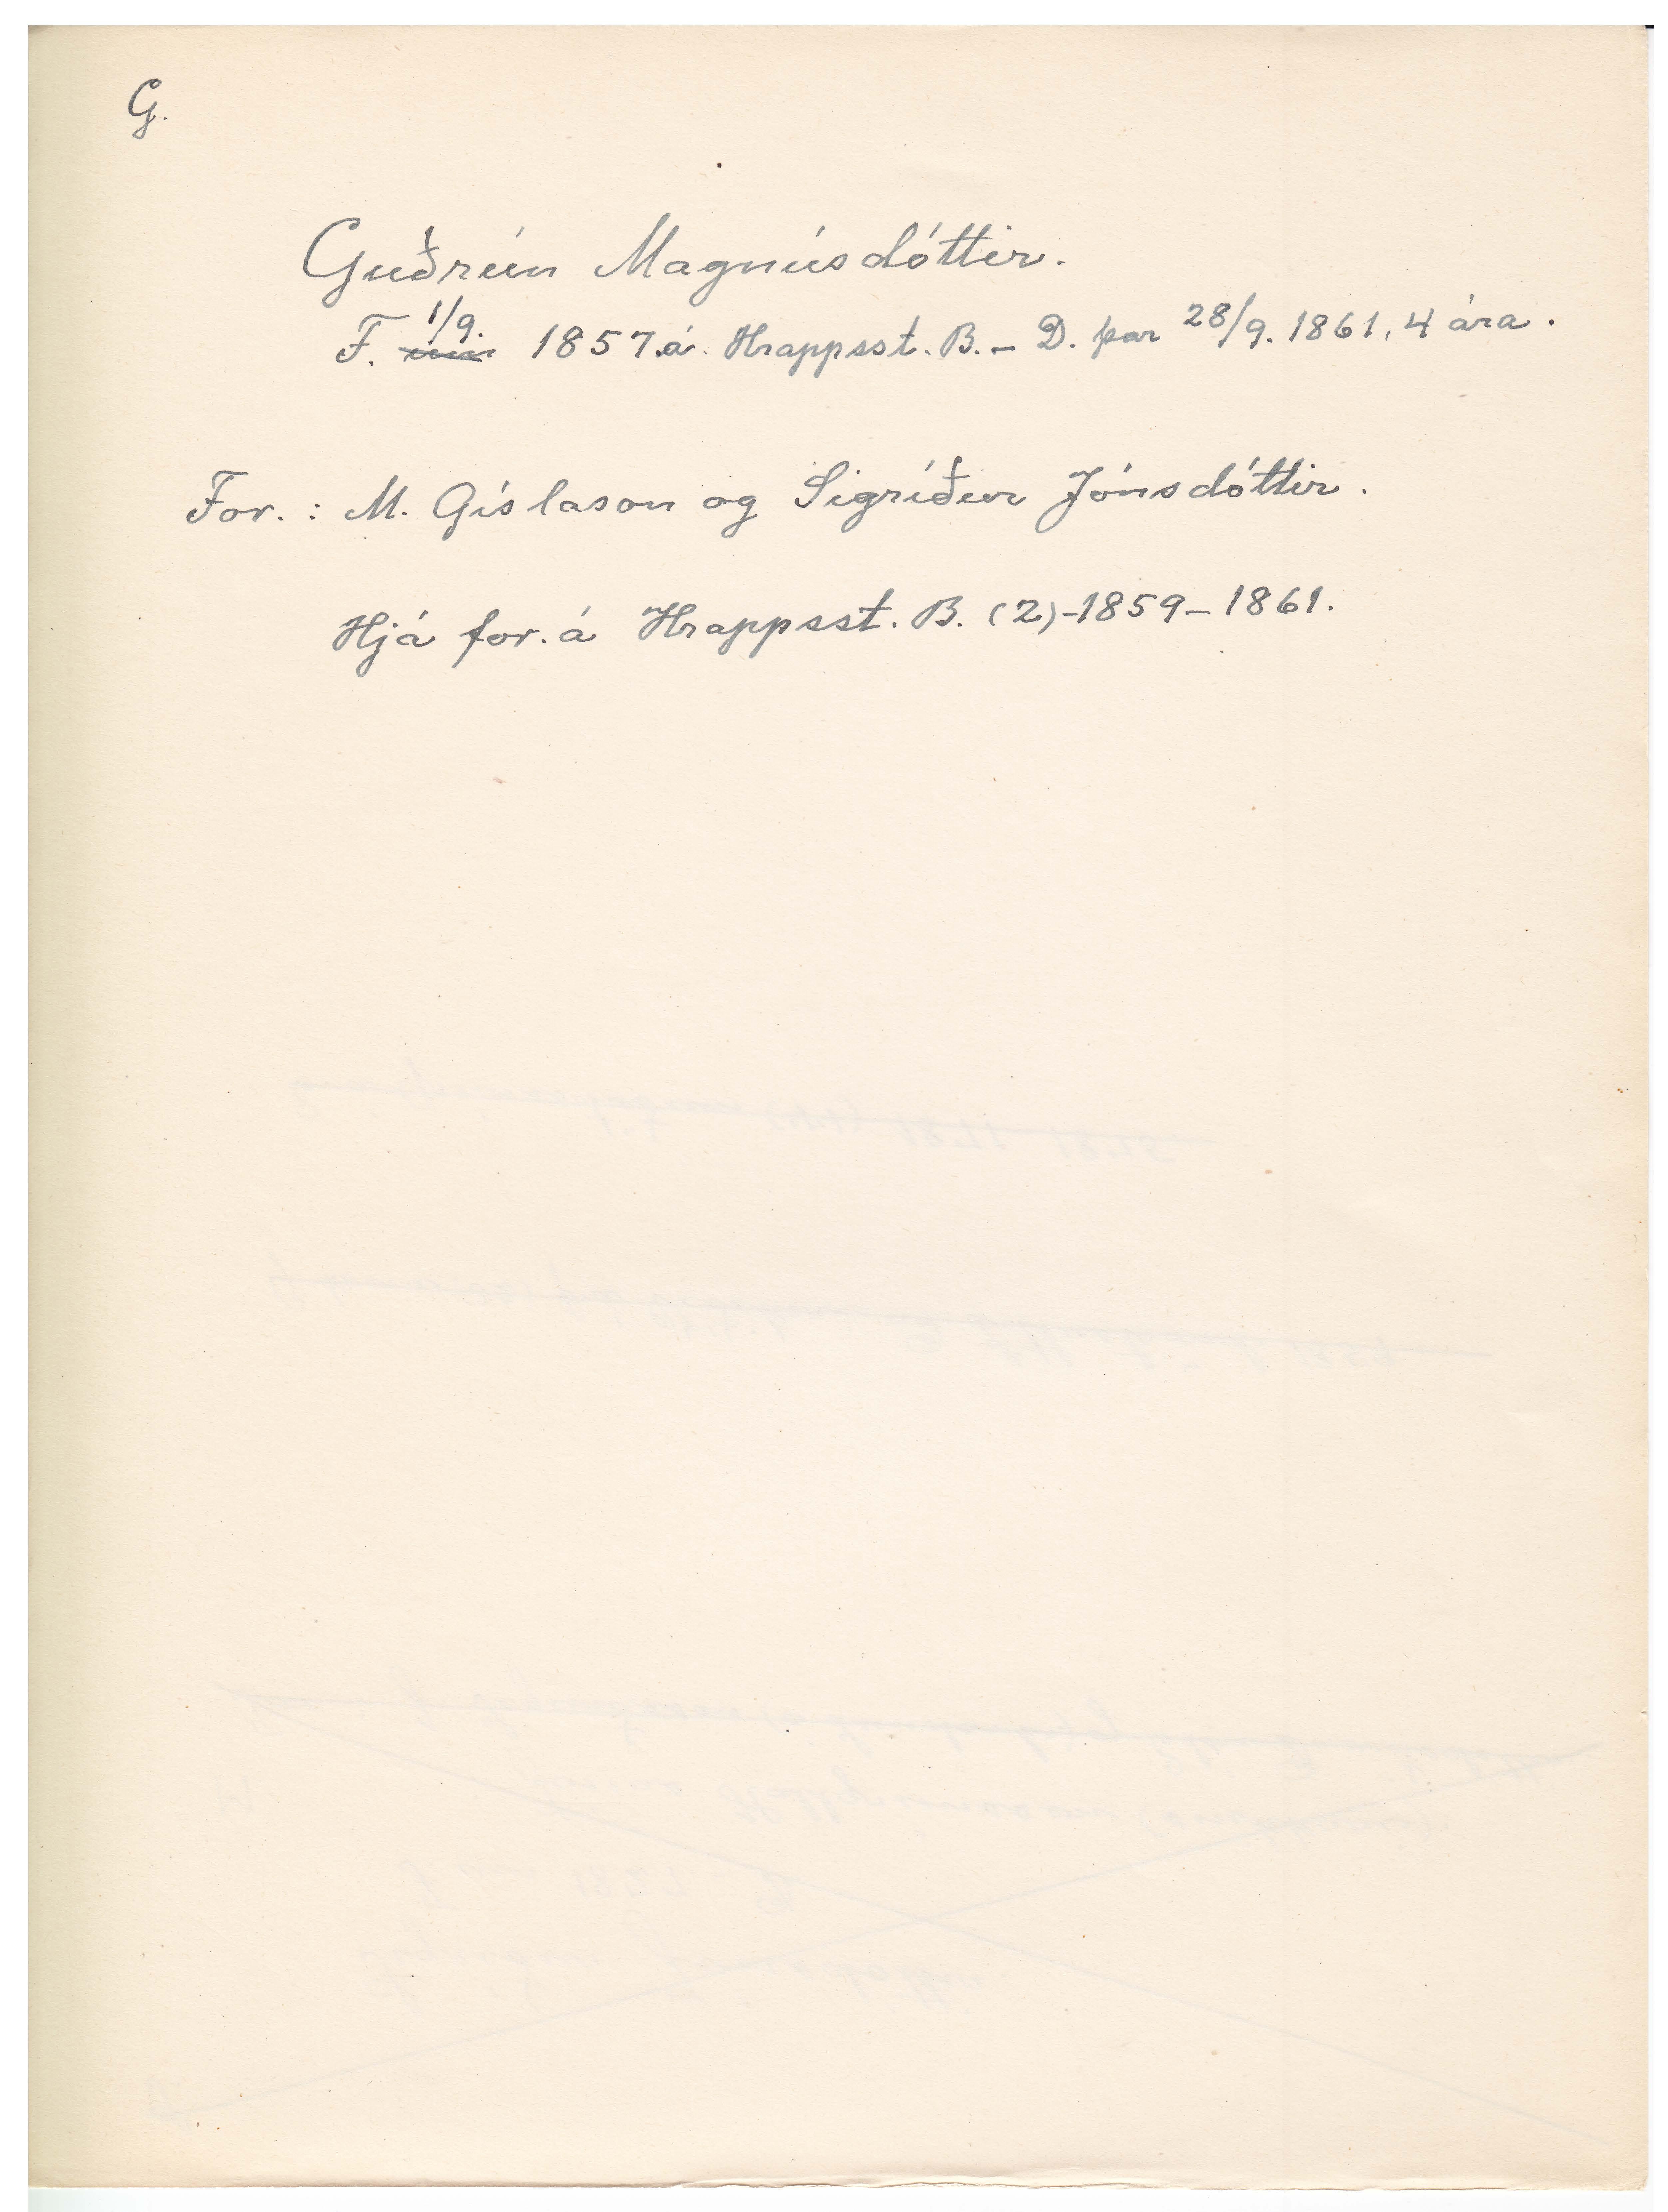 G.
Guðrún Magnúsdóttir.
F. 1/9. um 1857.á. Hrappsst. B. - D. þar 28/9. 1861, 4 ára.
For.: M. Gíslason og Sigríður Jónsdóttir.
Hjá for. á Hrappsst. B. (2)-1859-1861.